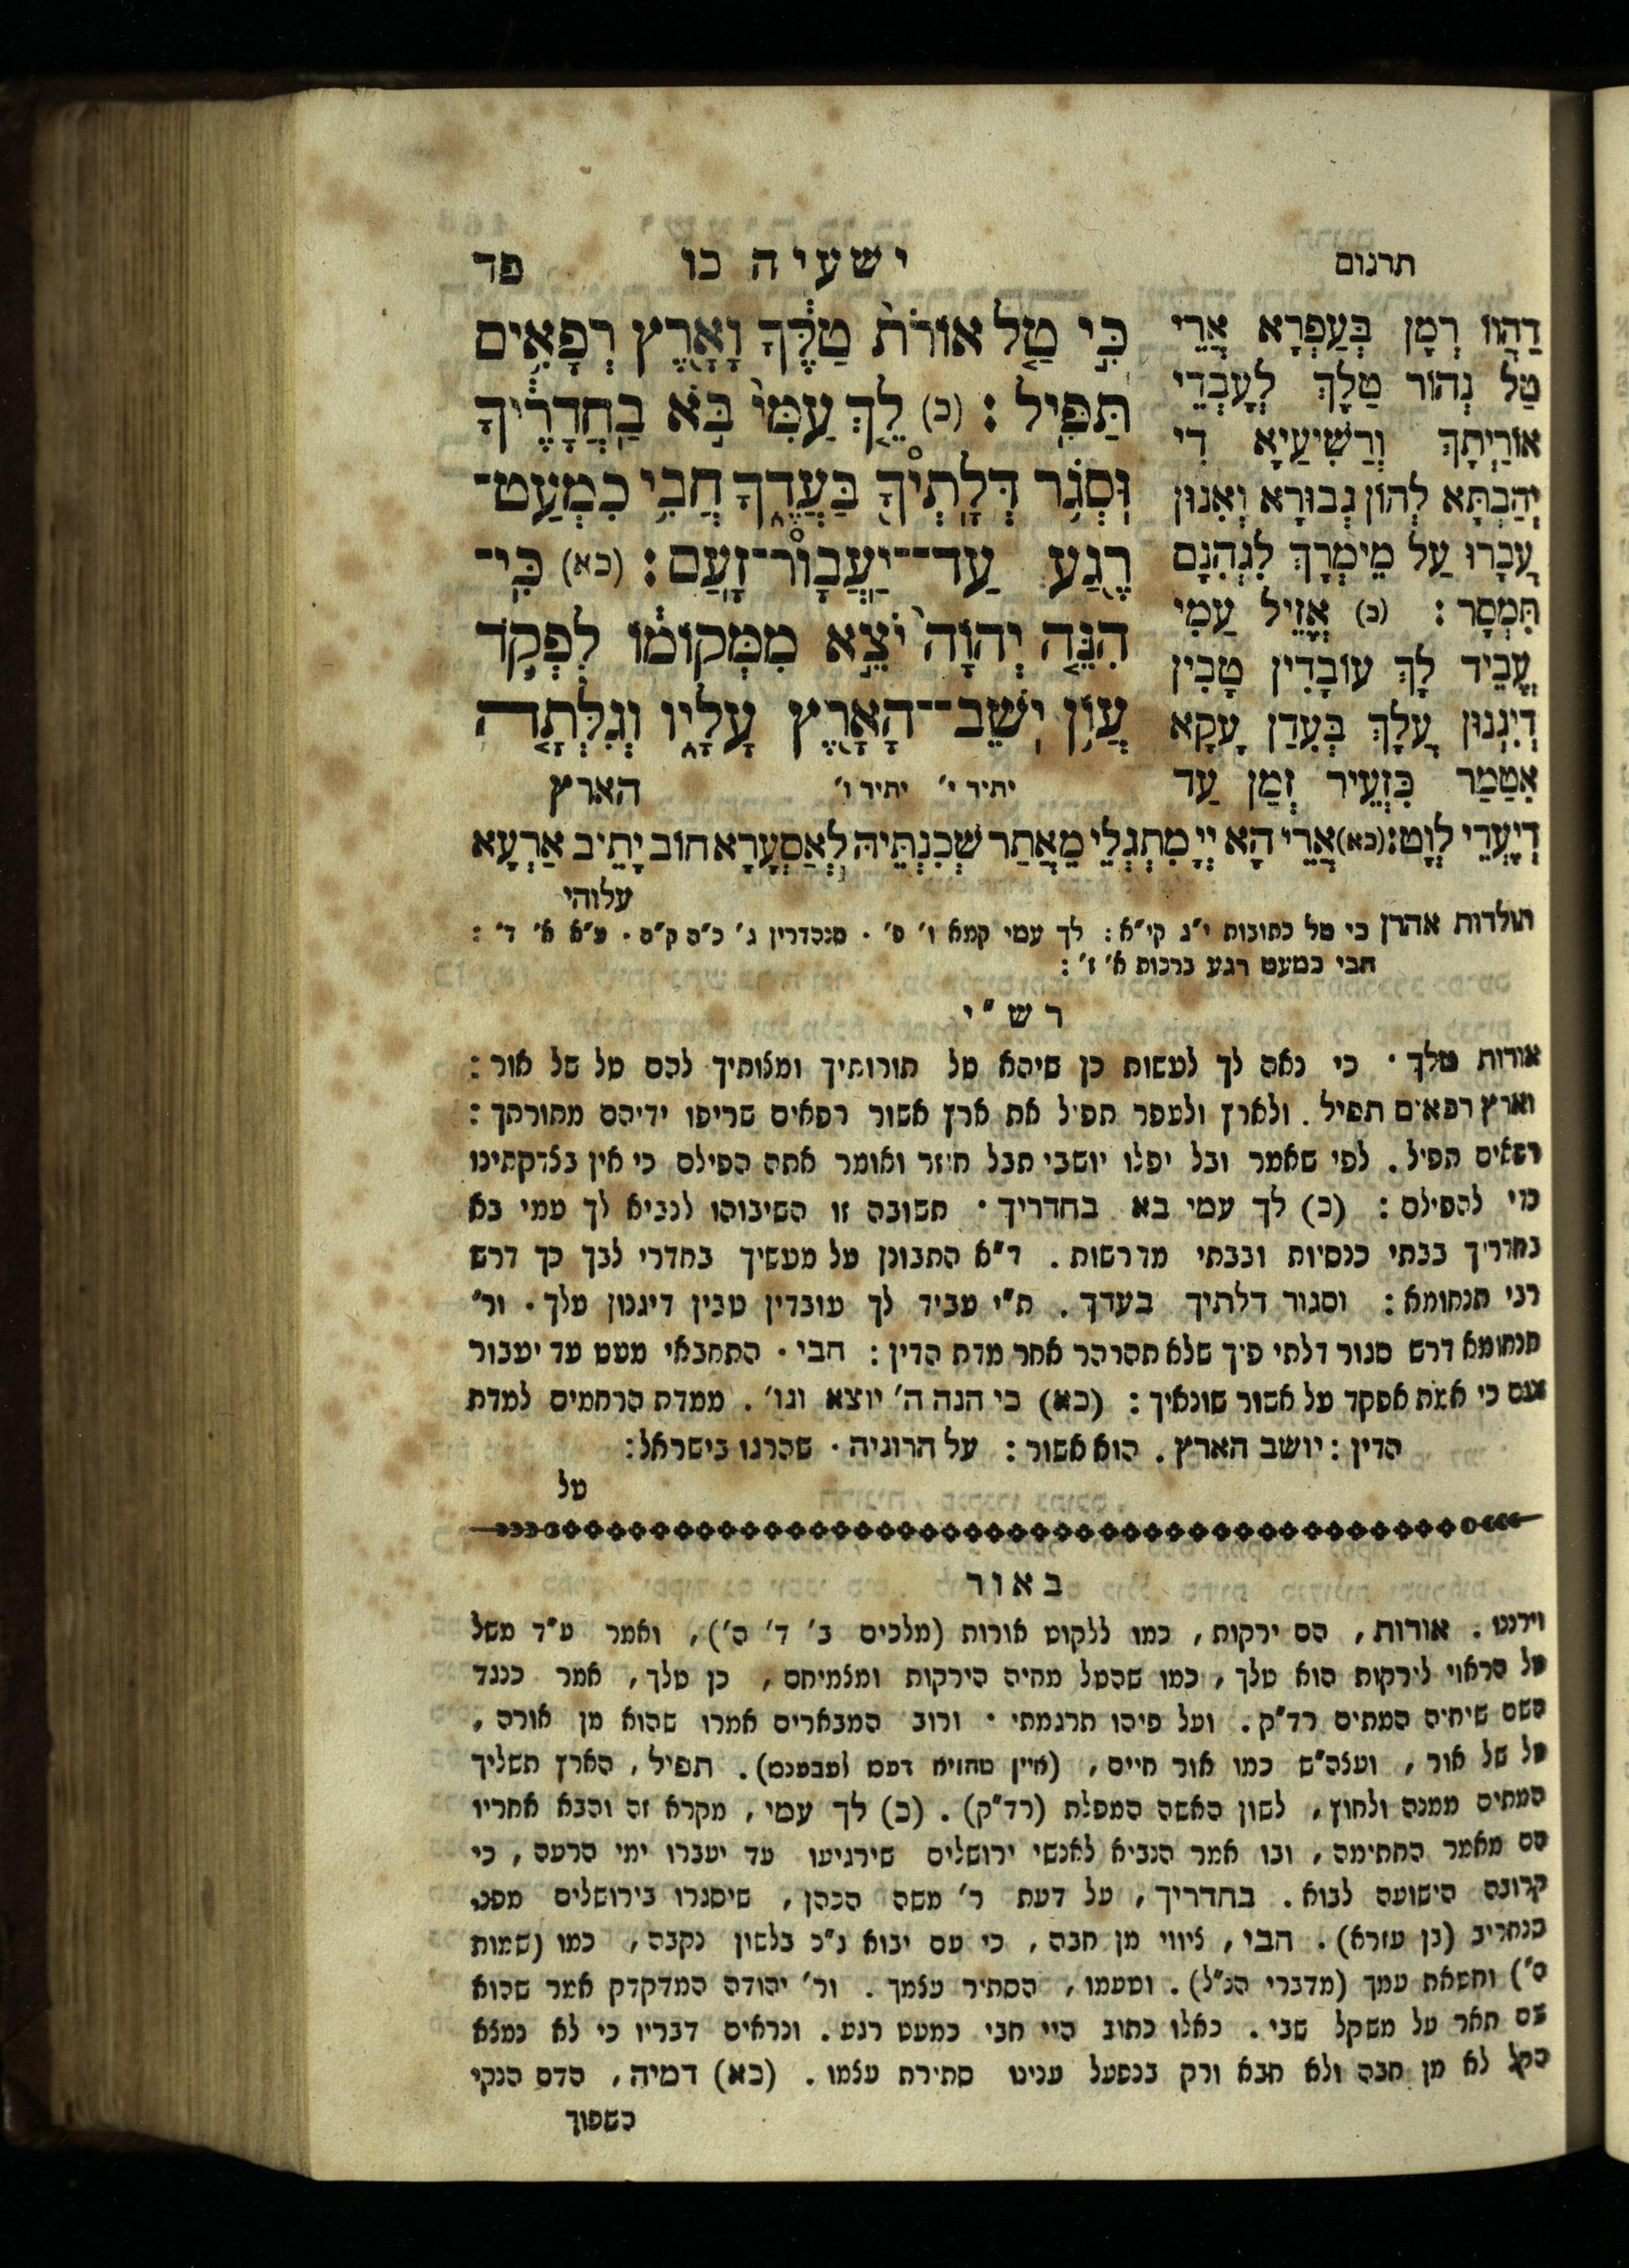 תרגום ישעיה כו פד
כִּ֣י טַ֤ל אוֹרֹת֙ טַלֶּ֔ךָ וָאָ֖רֶץ רְפָאִ֥ים
תַּפִּֽיל׃ (כ) לֵ֤ךְ עַמִּי֙ בֹּ֣א בַֽחֲדָרֶ֔יךָ
וּֽסְגֹ֥ר דְּלָֽתְיךָ֖ בַּֽעֲדֶ֑ךָ חֲבִ֥י כִמְעַט־
רֶ֖גַע עַד־יַֽעֲבָור־זָֽעַם׃ (כא) כִּֽי־
הִנֵּ֤ה יְהוָֹה֙ יֹצֵ֣א מִמְּקוֹמ֔וֹ לִפְקֹ֛ד
עֲוֹ֥ן יֽשֵׁב־הָאָ֖רֶץ עָלָ֑יו וְגִלְּתָ֤ה
יתיר י׳ יתיר ו׳ הארץ
דַהֲווֹ רְמָן בְּעַפְרָא אֲרֵי
טַל נְהוֹר טַלָךְ לְעָבְדֵי
אוֹרַיְתָךְ וְרַשִׁיעַיָא דִי
יְהַבְתָּא לְהוֹן גְבוּרָא וְאִנוּן
עֲבָרוּ עַל מֵימְרָךְ לְגֵהִנָם
תִּמְסָר׃ (כ) אֱזֵיל עַמִי
עֲבֵיד לָךְ עוֹבָדִין טָבִין
דְיִגְנוּן עֲלָךְ בְּעִדַן עָקָא
אִטַמַר כִּזְעֵיר זְמַן עַד
דְיֶעְדֵי לְוָט׃ (כא) אֲרֵי הָא יְיָ מִתְגְלֵי מֵאֲתַר שְׁכִנְתֵּיהּ לְאַסְעָרָא חוֹב יָתֵיב אַרְעָא
עלוהי
תולדות אהרן כי טל כתובות י״ג קי״א׃ לך עמי קמא ו׳ ס׳ · סנהדרין ג׳ כ״ה ק״ה · ע״א א׳ ד׳ ׃
חבי כמעט רגע ברכות א׳ ז׳ ׃
רש״י
אורות טלך · כי נאה לך לעשות כן שיהא טל תורותיך ומצותיך להם טל של אור ׃
וארץ רפאים תפיל. ולארץ ולעפר תפיל את ארץ אשור רפאים שריפו ידיהם מתורתך ׃
רפאים תפיל. לפי שאמר ובל יפלו יושבי תבל חוזר ואומר אתה הפילם כי אין בצדקתינו
כדי להפילם ׃ (כ) לך עמי בא בחדריך · תשובה זו השיבוהו לנביא לך עמי בא
בחדריך בבתי כנסיות ובבתי מדרשות. ד״א התבונן על מעשיך בחדרי לבך כך דרש
רבי תנחומא ׃ וסגור דלתיך בעדך. ת״י עביד לך עובדין טבין דיגנון עלך · ור׳
תנחומא דרש סגור דלתי פיך שלא תהרהר אחר מדת הדין ׃ חבי · התחבאי מעט עד יעבור
זעם כי אצת אפקד על אשור שונאיך ׃ (כא) כי הנה ה׳ יוצא וגו׳. ממדת הרחמים למדת
הדין ׃ יושב הארץ. הוא אשור ׃ על הרוגיה · שהרגו בישראל׃
על
באור
וירננו. אורות, הם ירקות, כמו ללקוט אורות (מלכים ב׳ ד׳ ה׳), ואמר ע״ד משל
טל הראוי לירקות הוא טלך, כמו שהטל מחיה הירקות ומצמיחם, כן טלך, אמר כנגד
השם שיחיה המתים רד״ק. ועל פיהו תרגמתי · ורוב המבארים אמרו שהוא מן אורה,
טל של אור, ועצה״ש כמו אור חיים, . תפיל, הארץ תשליך
המתים ממנה ולחוץ, לשון האשה המפלת (רד״ק). (כ) לך עמי, מקרא זה והבא אחריו
הם מאמר החתימה, ובו אמר הנביא לאנשי ירושלים שירגיעו עד יעברו ימי הרעה, כי
קרובה הישועה לבוא. בחדריך, על דעת ר׳ משה הכהן, שיסגרו בירושלים מפני
סנחריב (בן עזרא). חבי, ציווי מן חבה, כי עם יבוא ג״כ בלשון נקבה, כמו (שמות
ה׳) וחטאת עמך (מדברי הנ״ל). וטעמו, הסתיר עצמך. ור׳ יהודה המדקדק אמר שהוא
שם תאר על משקל שבי. כאלו כתוב היי חבי כמעט רגע. ונראים דבריו כי לא נמצא
הקל לא מן חבה ולא חבא ורק בנפעל ענינו סתירת עצמו. (כא) דמיה, הדם הנקי
כשפוך